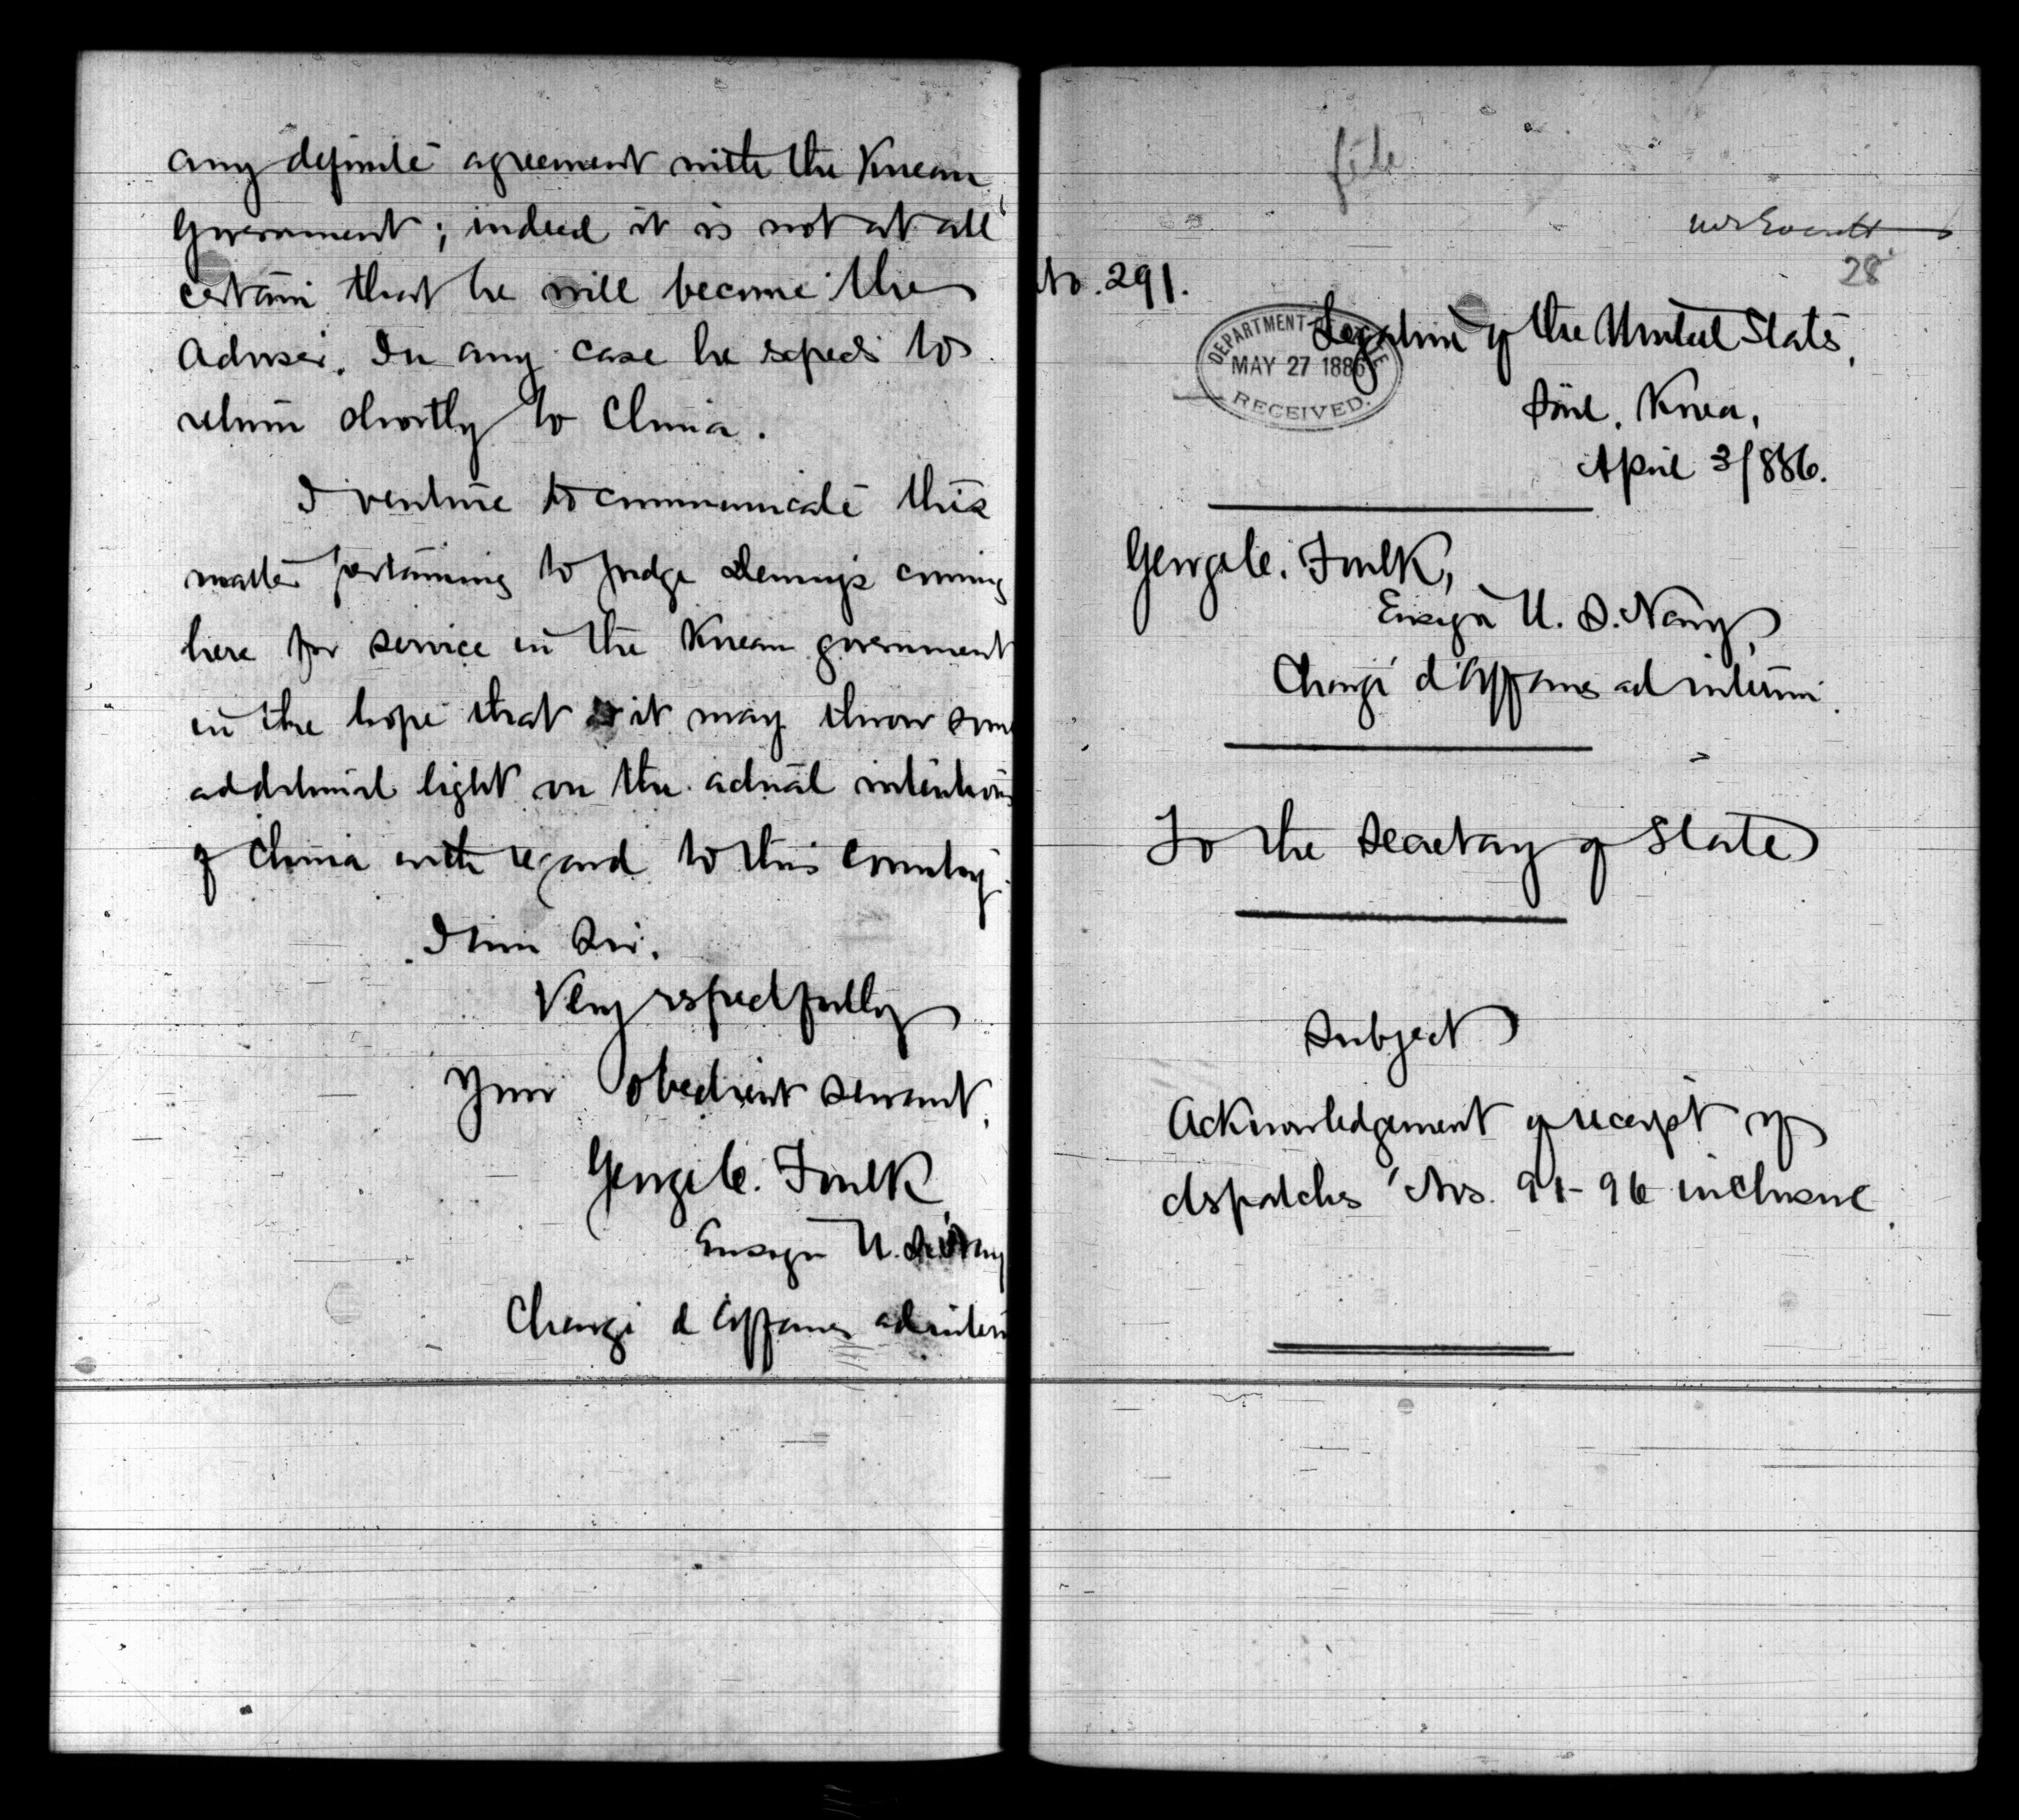 any definite agreement with the Korean
Government; indeed it is not at all
certain that he will become the
Adviser. In any case he expects to
return shortly to China.
I venture to communicate this
matter pertaining to Judge Denny's coming
here for service in the Korean government
in the hope that it may throw some
additional light on the actual intentions
of China with regard to this country.
I am Sir,
Very respectfully
Your obedient servant,
George C. Foulk
Ensign U.S. Navy
Chargé d'Affaires ad interim
file
Mr Everett
28
No. 291.
Legation of the United States,
DEPARTMENT OF STATE
MAY 27 1886
RECEIVED.
Söul, Korea,
April 3/886.
George C. Foulk,
Ensign U. S. Navy,
Chargé d'Affaires ad interim.
To the Secretary of State
Subject
Acknowledgement of receipt of
dispatches Nos. 91-96 inclusive.